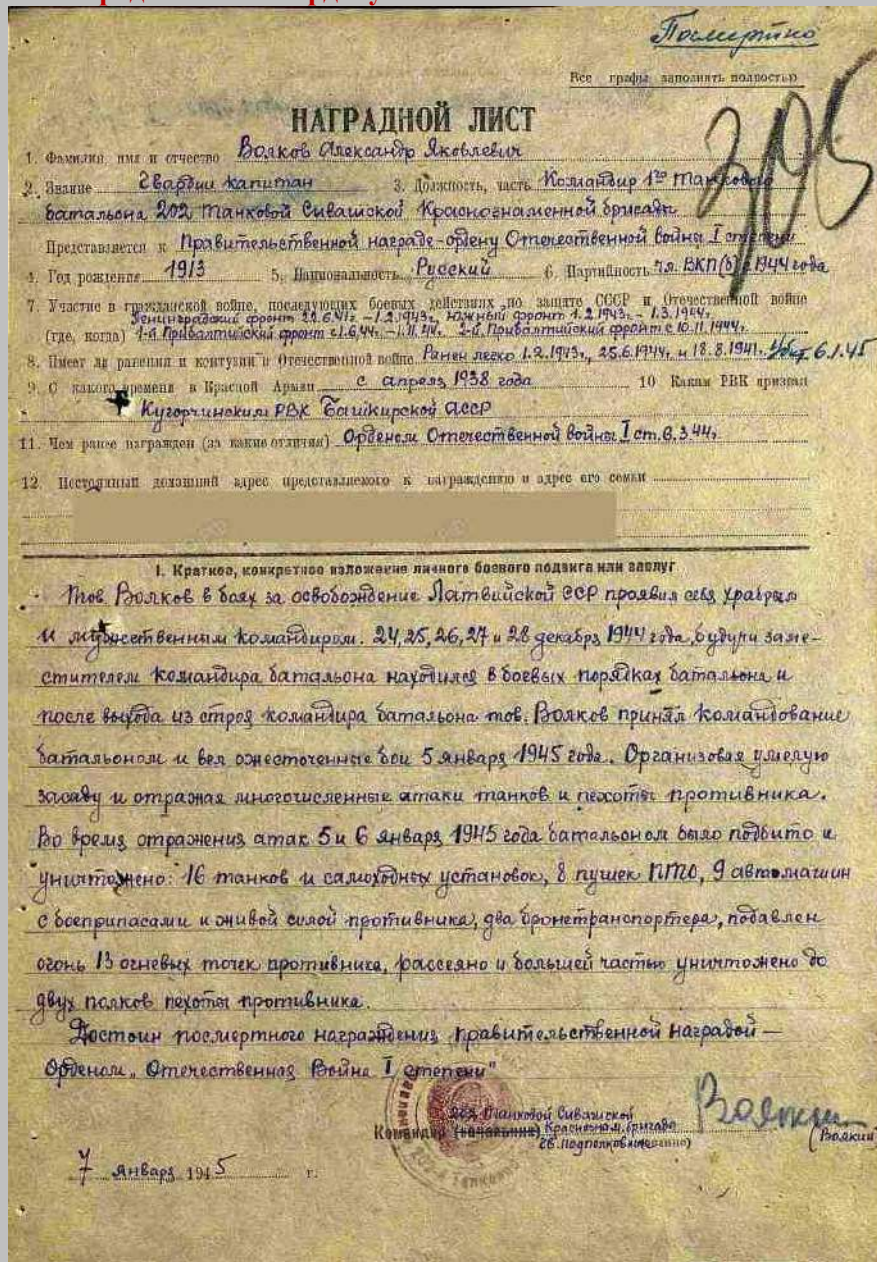 Посмертно
Все графы заполнять полностью
НАГРАДНОЙ ЛИСТ
305
1. Фамилия, имя и отчество Волков Александр Яковлевич
2. Звание Гвардии капитан 3. Должность, часть Командир 1го танкового
батальона 202 танковой Сивашской Краснознаменной бригады
Представляется к Правительственной награде-ордену Отечественной войны I степени
4. Год рождения 1913 5. Национальность Русский 6. Партийность чл. ВКП(б) с 1944 года
7. Участие в гражданской войне, последующих боевых действиях по защите СССР и Отечественной войне
Ленинградский фронт 22.6.41г. – 1.2.1943г., Южный фронт 1.2.1943г. – 1.3.1944г.
(где, когда) 1-й Прибалтийский фронт с 1.6.44г. – 1.11.44г. 2-й Прибалтийский фронт с 10.11.1944г.
8. Имеет ли ранения и контузии в Отечественной войне Ранен легко 1.2.1943г., 25.6.1944г. и 18.8.1941. Убит 6.1.45
9. С какого времени в Красной Армии с апреля 1938 года 10 Каким РВК призван
Кугорчинским РВК Башкирской АССР
11. Чем ранее награжден (за какие отличия) Орденом Отечественной войны I ст. 6.3.44г.
12. Постоянный домашний адрес представляемого к награждению и адрес его семьи
I. Краткое, конкретное изложение личного боевого подвига или заслуг
Тов. Волков в боях за освобождение Латвийской ССР проявил себя храбрым
и мужественным командиром. 24, 25, 26, 27 и 28 декабря 1944 года, будучи заме-
стителем командира батальона находился в боевых порядках батальона и
после выхода из строя командира батальона тов. Волков принял командование
батальоном и вел ожесточенные бои 5 января 1945 года. Организовая умелую
засаду и отражая многочисленные атаки танков и пехоты противника.
Во время отражения атак 5 и 6 января 1945 года батальоном было подбито и
уничтожено: 16 танков и самоходных установок, 8 пушек ПТО, 9 автомашин
с боеприпасами и живой силой противника, два бронетранспортера, подавлен
огонь 13 огневых точек противника, рассеяно и большей частью уничтожено до
двух полков пехоты противника.
Достоин посмертного награждения правительственной наградой –
Орденом „Отечественная Война I степени"
202 Танковой Сивашской
Командир (начальник) Краснознам. бригады
Гв. Подполковник
(Воякин)
7 января 1945 г.